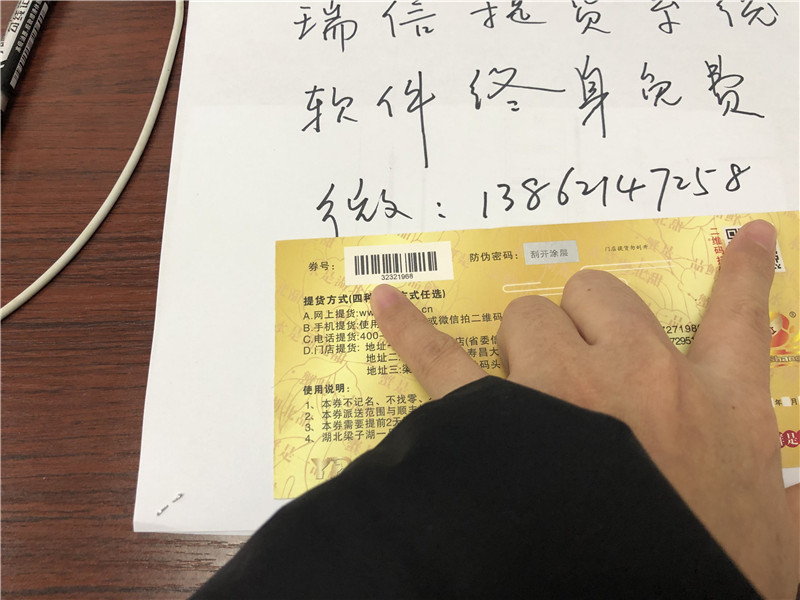 瑞信提货系统
软件终身免费
微：13862147258
券号：
32321968
防伪密码：
刮开涂层
门店提货即刮开
二维码
提货方式(四种 方式任选)
A.网上提货:ww .cn
B.手机提货:使用 或微信拍二维码
C.电话提货:400-
D.门店提货: 地址一 店(省委
地址二: 寿昌大
地址三:梁 码头
使用说明：
1、本券不记名、不找零、
2、本券派送范围与顺丰
3、本券需要提前2天
4、湖北梁子湖一